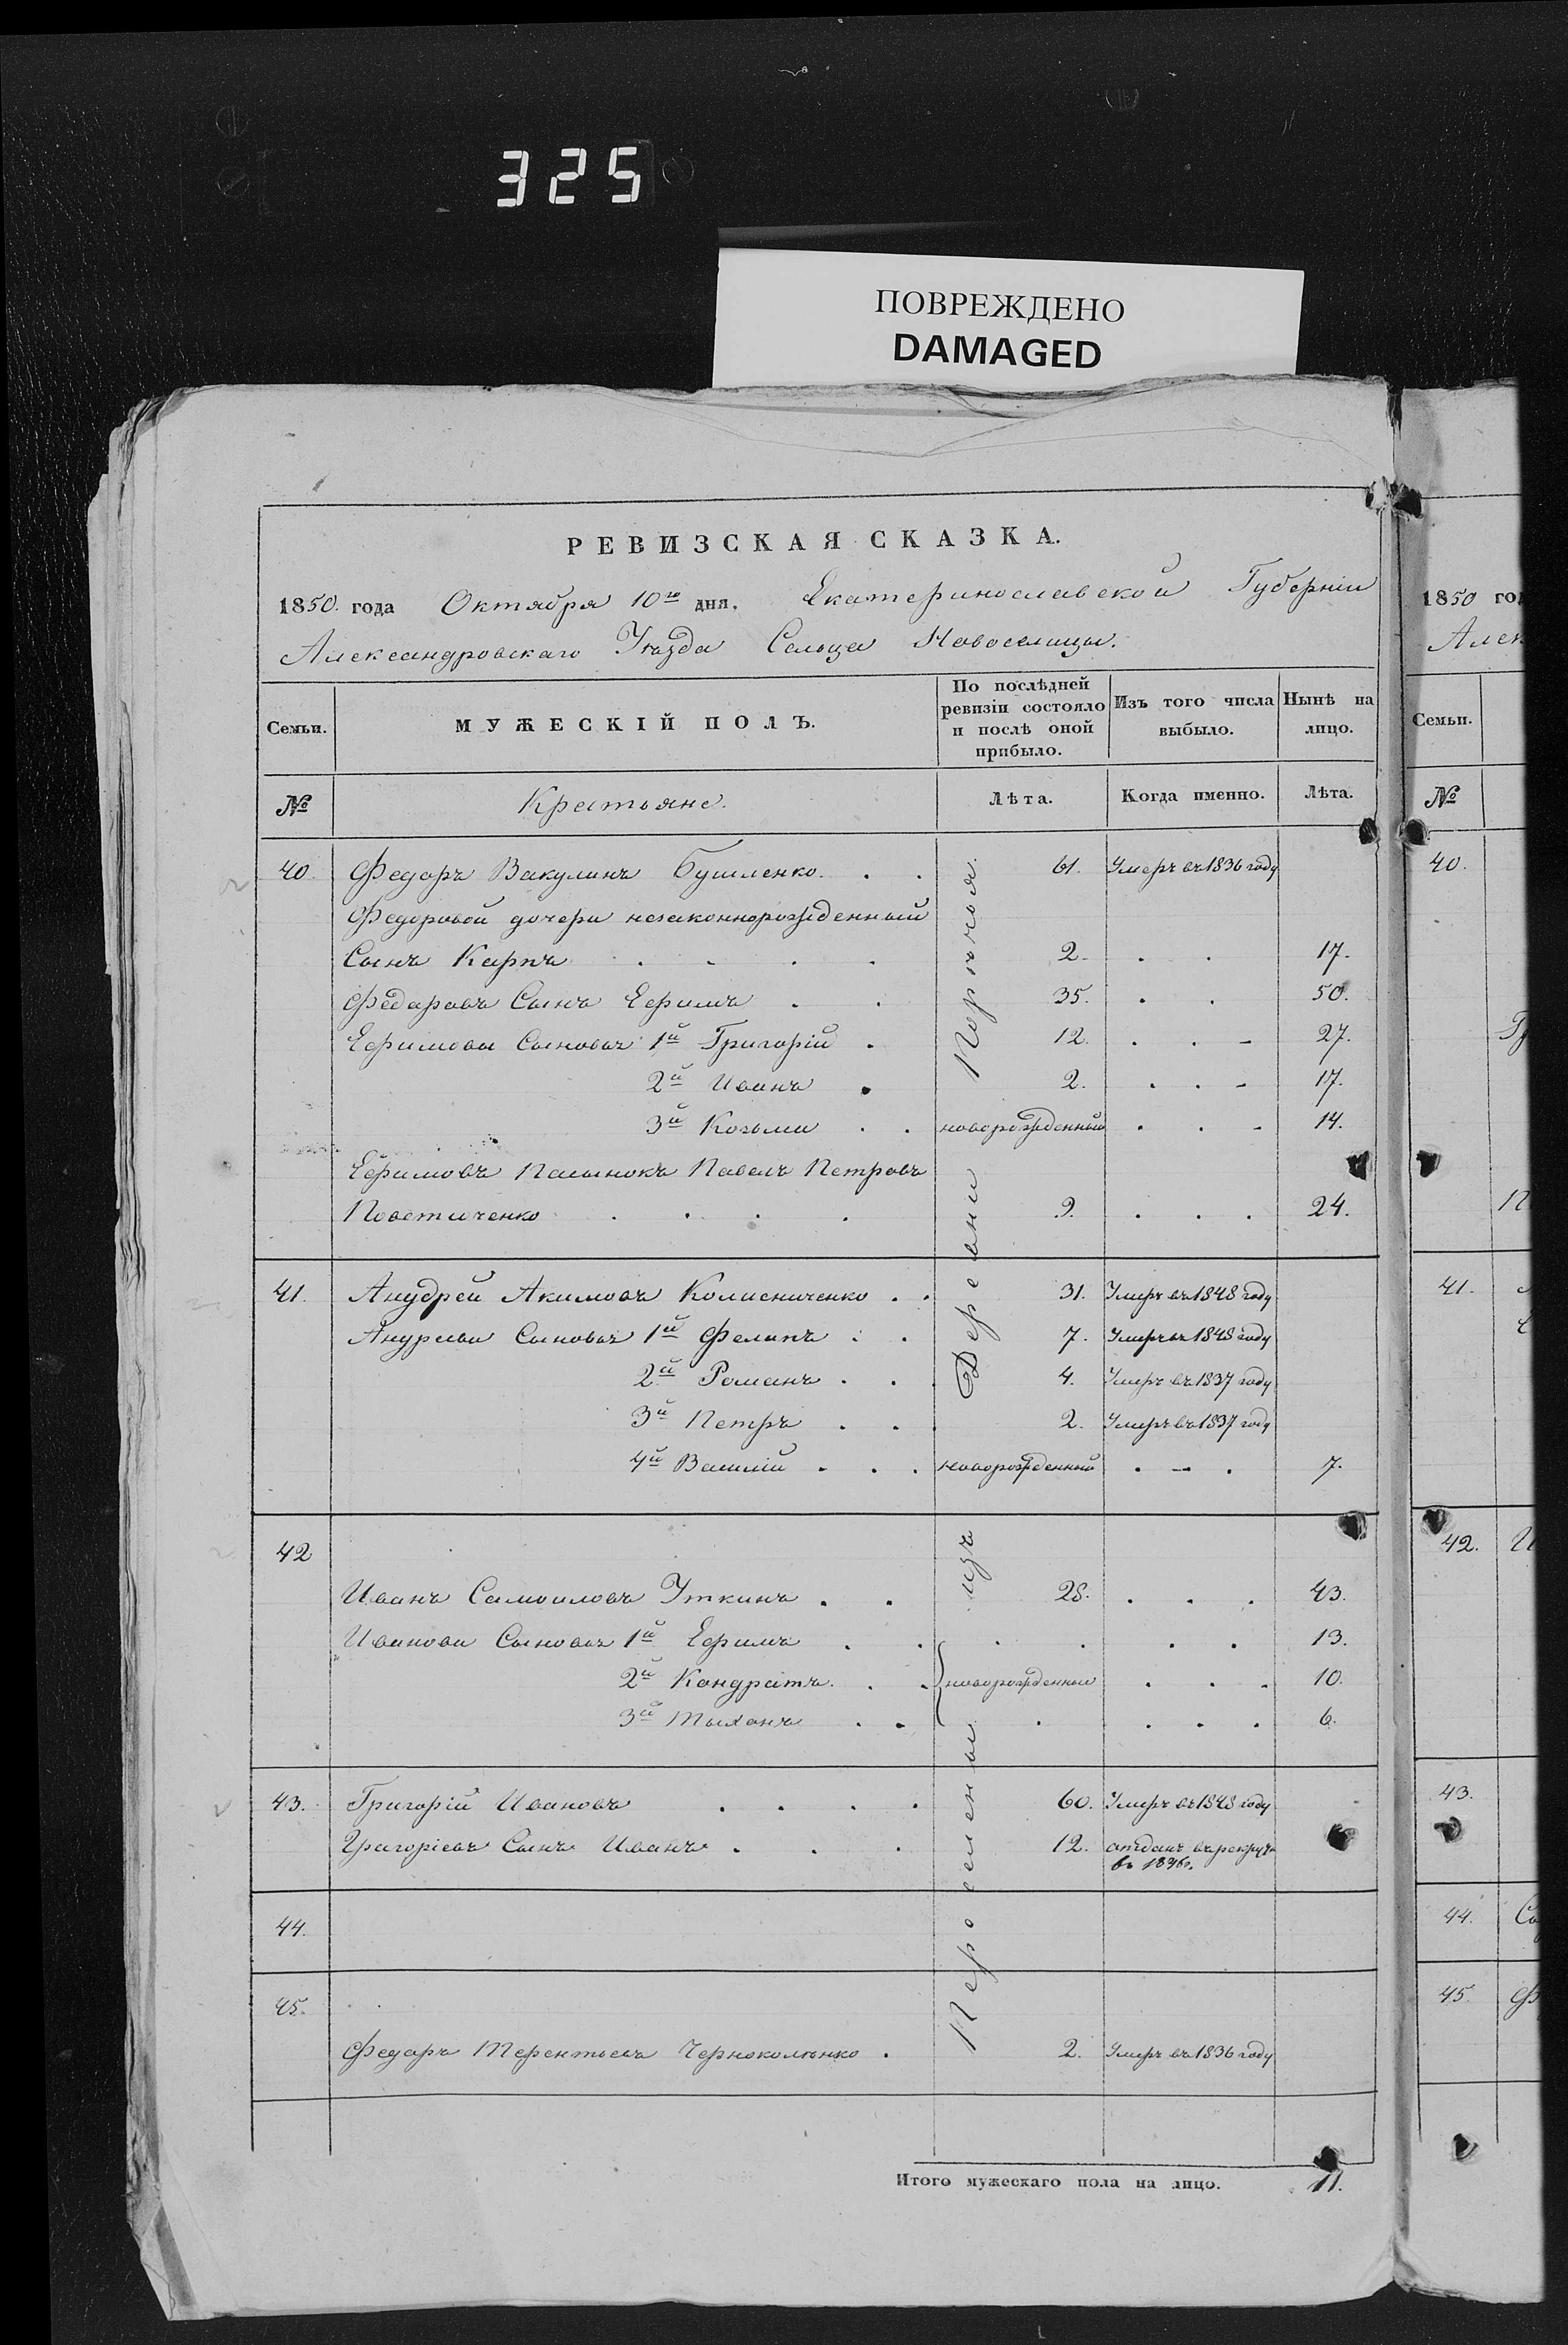 325
ПОВРЕЖДЕНО
DAMAGED
РЕВИЗСКАЯ СКАЗКА.
1850. года Октября 10го дня. Екатеринославской Губерніи
Александровскаго Уѣзда Сельца Новоселицы.
Семьи. МУЖЕСКІЙ ПОЛЪ. По послѣдней ревизіи состояло и послѣ оной прибыло. Изъ того числа выбыло. Нынѣ на лицо.
№ Крестьяне. Лѣта. Когда именно. Лѣта.
Переселены изъ Деревни
40. Федоръ Вакулинъ Бушленко. 61. Умеръ въ 1836 году
Федоровой дочери незаконнорожденный
Сынъ Карпъ 2. 17.
Федоровъ Сынъ Ефимъ 35. 50.
Ефимовы Сыновья 1й Григорій 12. 27.
2й Иванъ 2. 17.
3й Козьма новорожденный 14.
Ефимовъ Пасынокъ Павелъ Петровъ
9. 24.
41. Андрей Акимовъ Колисниченко 31. Умеръ въ 1848 году
Андреевы Сыновья 1й Филипъ 7. Умеръ въ 1848 году
2й Романъ 4. Умеръ въ 1837 году
3й Петръ 2. Умеръ въ 1837 году
4й Василій новорожденный 7.
42
Иванъ Самойловъ Уткинъ 28. 43.
Ивановы Сыновья 1й Ефимъ 13.
2й Кондратъ новорожденные 10.
3й Тыхонъ 6.
43. Григорій Ивановъ 60. Умеръ въ 1848 году
Григоріевъ Сынъ Иванъ 12. отданъ въ рекруты
44.
45.
Федоръ Терентьевъ 2. Умеръ въ 1836 году
Итого мужескаго пола на лицо. 11.
1850 год
Алек
Семьи.
№
40.
41.
42.
43.
44.
45.